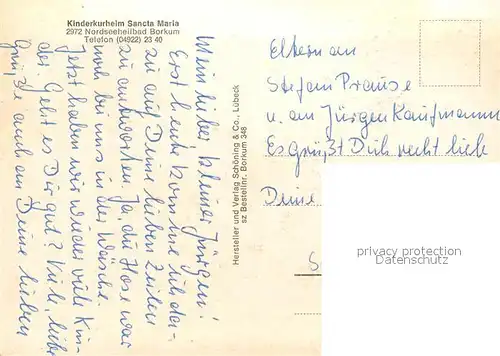 Kinderkurheim Sancta Maria
2972 Nordseeheilbad Borkum
Telefon (04922) 23 40
Mein lieber kleiner Jürgen!
Erst heute komme ich da-
zu auf Deine lieben Zeilen
zu antworten. Ja, die Hose war
noch bei uns in der Wäsche.
Jetzt haben wir wieder viele Kin-
der. Geht es Dir gut? Viele, liebe
Grüße auch an Deine lieben
Hersteller und Verlag Schöning & Co., Lübeck
sz Bestellnr. Borkum 348
Eltern an
Stefan Prause
u. an Jürgen Kaufmann
Es grüßt Dich recht lieb
Deine
privacy protection
Datenschutz